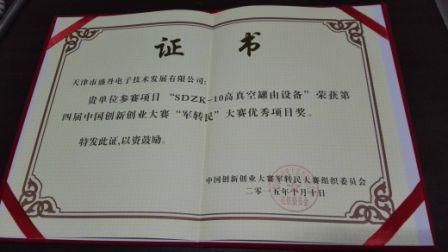 证书
天津市盛丹电子技术发展有限公司:
贵单位参赛项目“SDZK-10高真空罐由设备”荣获第
四届中国创新创业大赛“军转民”大赛优秀项目奖。
特发此证,以资鼓励。
中国创新创业大赛军转民大赛组织委员会
二〇一五年十月十日